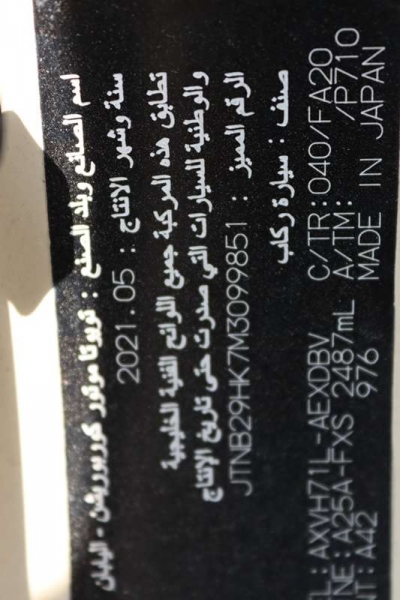 اسم الصانع وبلد الصنع : تويوتا موتور كوربوريشن - اليابان
سنة وشهر الانتاج : 2021.05
تطابق هذه المركبة جميع اللوائح الفنية الخليجية
والوطنية للسيارات التي صدرت حتى تاريخ الإنتاج
الرقم المميز : JTNB29HK7M3099851
صنف : سيارة ركاب
L: AXVH71L-AEXDBV C/TR: 040/FA20
NE: A25A-FXS 2487mL A/TM: /P710
NT: A42 976 MADE IN JAPAN